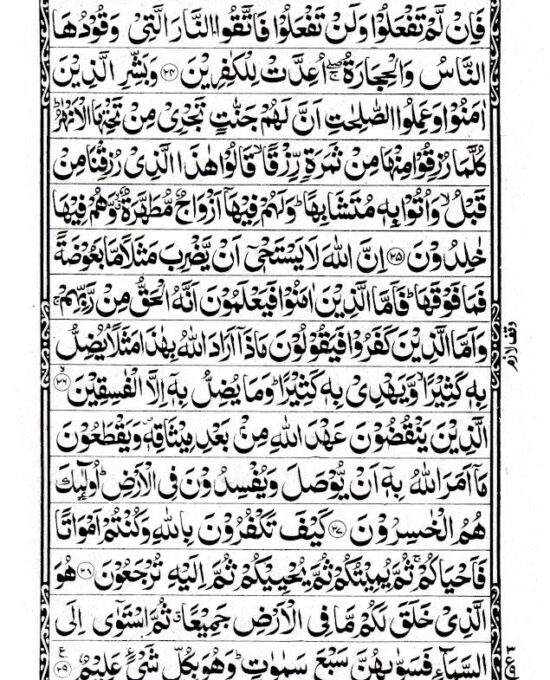 فَاِنۡ لَّمۡ تَفۡعَلُوۡا وَلَنۡ تَفۡعَلُوۡا فَاتَّقُوا النَّارَ الَّتِىۡ وَقُوۡدُهَا
النَّاسُ وَالۡحِجَارَةُ ۖۚ اُعِدَّتۡ لِلۡكٰفِرِيۡنَ ﴿۲۴﴾ وَبَشِّرِ الَّذِيۡنَ
اٰمَنُوۡا وَعَمِلُوا الصّٰلِحٰتِ اَنَّ لَهُمۡ جَنّٰتٍ تَجۡرِىۡ مِنۡ تَحۡتِهَا الۡاَنۡهٰرُ ؕ
كُلَّمَا رُزِقُوۡا مِنۡهَا مِنۡ ثَمَرَةٍ رِّزۡقًا ۙ قَالُوۡا هٰذَا الَّذِىۡ رُزِقۡنَا مِنۡ
قَبۡلُ ۙ وَاُتُوۡا بِهٖ مُتَشَابِهًا ؕ وَلَهُمۡ فِيۡهَآ اَزۡوَاجٌ مُّطَهَّرَةٌ ۙ وَّهُمۡ فِيۡهَا
خٰلِدُوۡنَ ﴿۲۵﴾ اِنَّ اللّٰهَ لَا يَسۡتَحۡىٖۤ اَنۡ يَّضۡرِبَ مَثَلًا مَّا بَعُوۡضَةً
فَمَا فَوۡقَهَا ؕ فَاَمَّا الَّذِيۡنَ اٰمَنُوۡا فَيَعۡلَمُوۡنَ اَنَّهُ الۡحَقُّ مِنۡ رَّبِّهِمۡ ۚ
وَاَمَّا الَّذِيۡنَ كَفَرُوۡا فَيَقُوۡلُوۡنَ مَاذَآ اَرَادَ اللّٰهُ بِهٰذَا مَثَلًا ۘ يُضِلُّ
وقف لازم
بِهٖ كَثِيۡرًا ۙ وَّيَهۡدِىۡ بِهٖ كَثِيۡرًا ؕ وَمَا يُضِلُّ بِهٖۤ اِلَّا الۡفٰسِقِيۡنَ ۙ ﴿۲۶﴾
الَّذِيۡنَ يَنۡقُضُوۡنَ عَهۡدَ اللّٰهِ مِنۡۢ بَعۡدِ مِيۡثَاقِهٖ ۪ وَيَقۡطَعُوۡنَ
مَآ اَمَرَ اللّٰهُ بِهٖۤ اَنۡ يُّوۡصَلَ وَيُفۡسِدُوۡنَ فِى الۡاَرۡضِ ؕ اُولٰٓٮِٕكَ
هُمُ الۡخٰسِرُوۡنَ ﴿۲۷﴾ كَيۡفَ تَكۡفُرُوۡنَ بِاللّٰهِ وَڪُنۡتُمۡ اَمۡوَاتًا
فَاَحۡيَاکُمۡ ۚ ثُمَّ يُمِيۡتُكُمۡ ثُمَّ يُحۡيِيۡكُمۡ ثُمَّ اِلَيۡهِ تُرۡجَعُوۡنَ ﴿۲۸﴾ هُوَ
الَّذِىۡ خَلَقَ لَكُمۡ مَّا فِى الۡاَرۡضِ جَمِيۡعًا ۗ ثُمَّ اسۡتَوٰٓى اِلَى
السَّمَآءِ فَسَوّٰٮهُنَّ سَبۡعَ سَمٰوٰتٍ ؕ وَهُوَ بِكُلِّ شَىۡءٍ عَلِيۡمٌ ﴿۲۹﴾